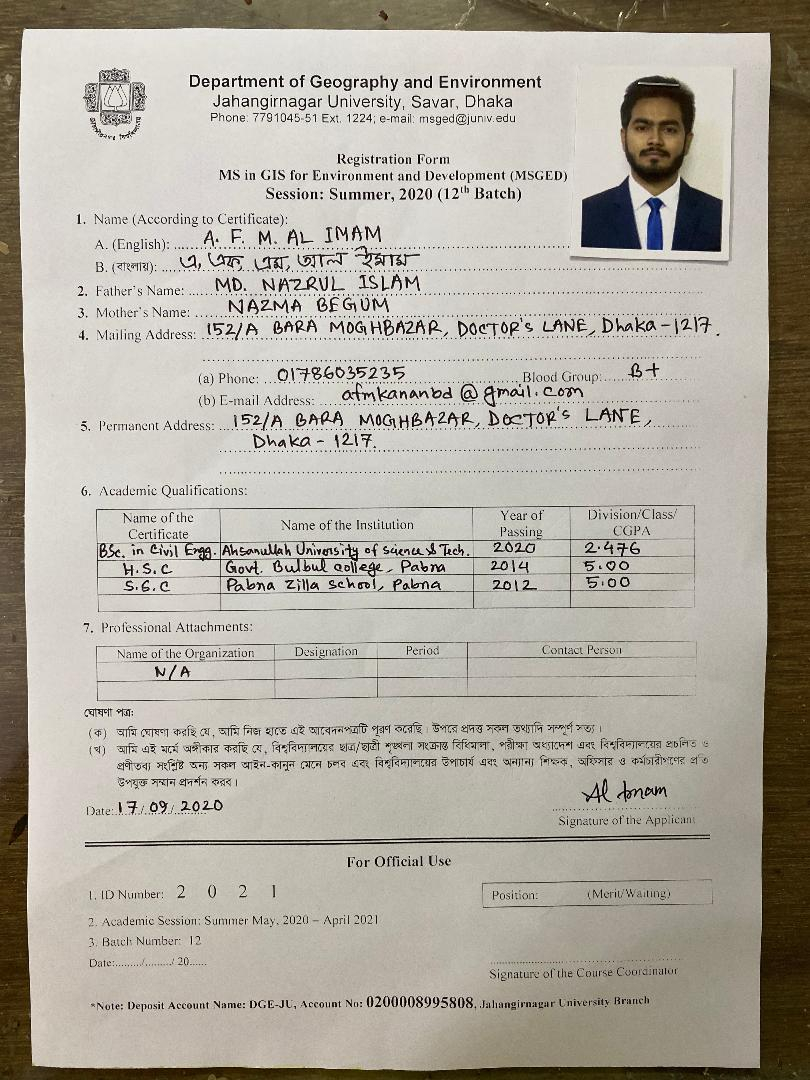 Department of Geography and Environment
Jahangirnagar University, Savar, Dhaka
Phone: 7791045-51 Ext. 1224; e-mail: msged@juniv.edu
Registration Form
MS in GIS for Environment and Development (MSGED)
Session: Summer, 2020 (12th Batch)
1. Name (According to Certificate):
A. (English): A. F. M. AL IMAM
B. (বাংলায়): এ, এফ, এম, আল ইমাম
2. Father's Name: MD. NAZRUL ISLAM
3. Mother's Name: NAZMA BEGUM
4. Mailing Address: 152/A BARA MOGHBAZAR, DOCTOR'S LANE, Dhaka-1217.
(a) Phone: 01786035235 Blood Group: B+
(b) E-mail Address: afmkananbd@gmail.com
5. Permanent Address: 152/A BARA MOGHBAZAR, DOCTOR'S LANE,
Dhaka - 1217.
6. Academic Qualifications:
Name of the Certificate Name of the Institution Year of Passing Division/Class/CGPA
BSc. in Civil Engg. Ahsanullah University of science & Tech. 2020 2.476
H.S.C Govt. Bulbul college, Pabna 2014 5.00
S.S.C Pabna Zilla school, Pabna 2012 5.00
7. Professional Attachments:
Name of the Organization Designation Period Contact Person
N/A
ঘোষণা পত্র:
(ক) আমি ঘোষণা করছি যে, আমি নিজ হাতে এই আবেদনপত্রটি পূরণ করেছি। উপরে প্রদত্ত সকল তথ্যাদি সম্পূর্ণ সত্য।
(খ) আমি এই মর্মে অঙ্গীকার করছি যে, বিশ্ববিদ্যালয়ের ছাত্র/ছাত্রী শৃঙ্খলা সংক্রান্ত বিধিমালা, পরীক্ষা অধ্যাদেশ এবং বিশ্ববিদ্যালয়ের প্রচলিত ও
প্রণীতব্য সংশ্লিষ্ট অন্য সকল আইন-কানুন মেনে চলব এবং বিশ্ববিদ্যালয়ের উপাচার্য এবং অন্যান্য শিক্ষক, অফিসার ও কর্মচারীগণের প্রতি
উপযুক্ত সম্মান প্রদর্শন করব।
Al Imam
Date: 17/09/2020
Signature of the Applicant
For Official Use
1. ID Number: 2 0 2 1
Position: (Merit/Waiting)
2. Academic Session: Summer May, 2020 – April 2021
3. Batch Number: 12
Date:......../......../ 20......
Signature of the Course Coordinator
*Note: Deposit Account Name: DGE-JU, Account No: 0200008995808, Jahangirnagar University Branch